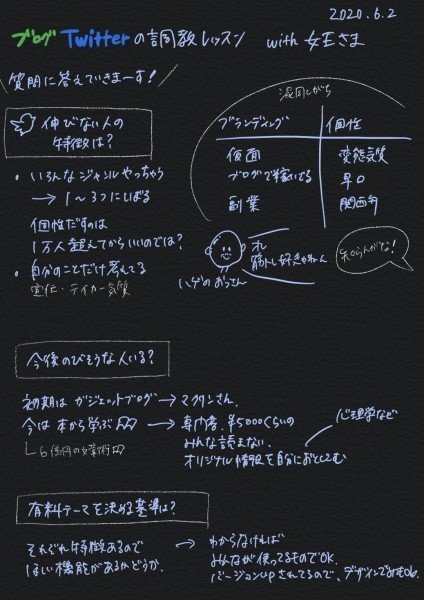 2020.6.2
ブログ Twitterの調教レッスン with 女王さま
質問に答えていきまーす!
伸びない人の
特徴は?
・いろんなジャンルやっちゃう
→ 1〜3つにしぼる
個性だすのは
1万人超えてからいいのでは?
・自分のことだけ考えてる
宣伝・テイカー気質
混同しがち
ブランディング 個性
仮面 変態気質
ブログで稼いでる 早口
副業 関西弁
オレ
筋トレ好きやねん
ハゲのおっさん
知らんがな!
今後のびそうな人いる?
初期は ガジェットブログ → マクリンさん
今は 本から学ぶ → 専門書、¥5000くらいの
みんな読まない
オリジナル情報を自分におとしこむ
心理学など
有料テーマを決める基準は?
それぞれ特徴あるので
ほしい機能があるかどうか、
→ わからなければ
みんなが使ってるものでOK
バージョンupされてるので、デザインで